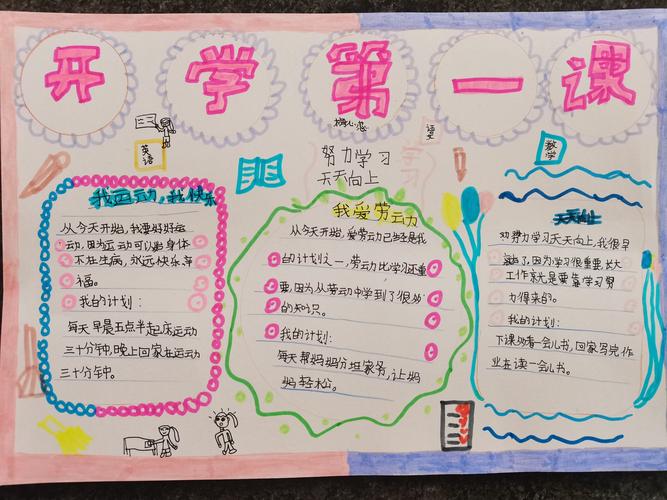 开学第一课
英语
语文
数学
努力学习
天天向上
我运动，我快乐
从今天开始，我要好好运
动，因为运动可以给身体
不在生病，永远快乐幸
福。
我的计划：
每天早晨五点半起床运动
三十分钟，晚上回家在运动
三十分钟。
我爱劳动
从今天开始，爱劳动已经是我
的计划之一，劳动比学习还重
要，因为从劳动中学到了很多
的知识。
我的计划：
每天帮妈妈分担家务，让妈
妈轻松。
天天向上
努力学习天天向上，我很早
因为学习很重要，长大
工作就是要靠学习努
力得来的。
我的计划：
下课看一会儿书，回家写完作
业在读一会儿书。